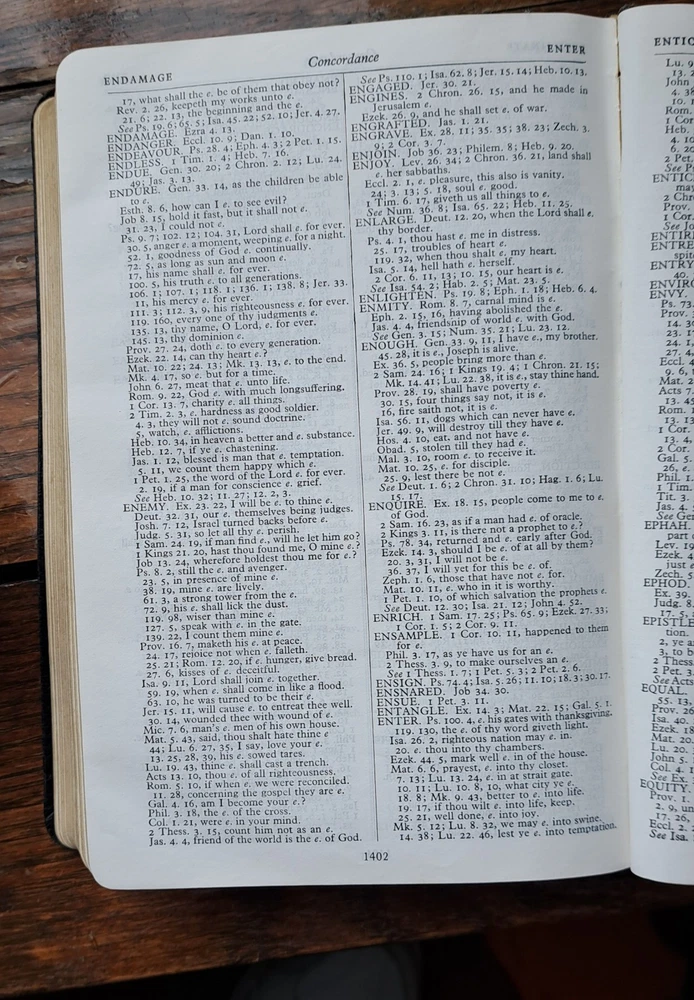 ENDAMAGE
Concordance
ENTER
17, what shall the e. be of them that obey not?
Rev. 2. 26, keepeth my works unto e.
21. 6; 22. 13, the beginning and the e.
See Ps. 19. 6; 65. 5; Isa. 45. 22; 52. 10; Jer. 4. 27.
ENDAMAGE. Ezra 4. 13.
ENDANGER. Eccl. 10. 9; Dan. 1. 10.
ENDEAVOUR. Ps. 28. 4; Eph. 4. 3; 2 Pet. 1. 15.
ENDLESS. 1 Tim. 1. 4; Heb. 7. 16.
ENDUE. Gen. 30. 20; 2 Chron. 2. 12; Lu. 24.
49; Jas. 3. 13.
ENDURE. Gen. 33. 14, as the children be able
to e.
Esth. 8. 6, how can I e. to see evil?
Job 8. 15, hold it fast, but it shall not e.
31. 23, I could not e.
Ps. 9. 7; 102. 12; 104. 31, Lord shall e. for ever.
30. 5, anger e. a moment, weeping e. for a night.
52. 1, goodness of God e. continually.
72. 5, as long as sun and moon e.
17, his name shall e. for ever.
100. 5, his truth e. to all generations.
106. 1; 107. 1; 118. 1; 136. 1; 138. 8; Jer. 33.
11, his mercy e. for ever.
111. 3; 112. 3, 9, his righteousness e. for ever.
119. 160, every one of thy judgments e.
135. 13, thy name, O Lord, e. for ever.
145. 13, thy dominion e.
Prov. 27. 24, doth e. to every generation.
Ezek. 22. 14, can thy heart e.?
Mat. 10. 22; 24. 13; Mk. 13. 13, e. to the end.
Mk. 4. 17, so e. but for a time.
John 6. 27, meat that e. unto life.
Rom. 9. 22, God e. with much longsuffering.
1 Cor. 13. 7, charity e. all things.
2 Tim. 2. 3, e. hardness as good soldier.
4. 3, they will not e. sound doctrine.
5, watch, e. afflictions.
Heb. 10. 34, in heaven a better and e. substance.
Heb. 12. 7, if ye e. chastening.
Jas. 1. 12, blessed is man that e. temptation.
5. 11, we count them happy which e.
1 Pet. 1. 25, the word of the Lord e. for ever.
2. 19, if a man for conscience e. grief.
See Heb. 10. 32; 11. 27; 12. 2, 3.
ENEMY. Ex. 23. 22, I will be e. to thine e.
Deut. 32. 31, our e. themselves being judges.
Josh. 7. 12, Israel turned backs before e.
Judg. 5. 31, so let all thy e. perish.
1 Sam. 24. 19, if man find e., will he let him go?
1 Kings 21. 20, hast thou found me, O mine e.?
Job 13. 24, wherefore holdest thou me for e.?
Ps. 8. 2, still the e. and avenger.
23. 5, in presence of mine e.
38. 19, mine e. are lively.
61. 3, a strong tower from the e.
72. 9, his e. shall lick the dust.
119. 98, wiser than mine e.
127. 5, speak with e. in the gate.
139. 22, I count them mine e.
Prov. 16. 7, maketh his e. at peace.
24. 17, rejoice not when e. falleth.
25. 21; Rom. 12. 20, if e. hunger, give bread.
27. 6, kisses of e. deceitful.
Isa. 9. 11, Lord shall join e. together.
59. 19, when e. shall come in like a flood.
63. 10, he was turned to be their e.
Jer. 15. 11, will cause e. to entreat thee well.
30. 14, wounded thee with wound of e.
Mic. 7. 6, man's e. men of his own house.
Mat. 5. 43, said, thou shalt hate thine e.
44; Lu. 6. 27, 35, I say, love your e.
13. 25, 28, 39, his e. sowed tares.
Lu. 19. 43, thine e. shall cast a trench.
Acts 13. 10, thou e. of all righteousness.
Rom. 5. 10, if when e. we were reconciled.
11. 28, concerning the gospel they are e.
Gal. 4. 16, am I become your e.?
Phil. 3. 18, the e. of the cross.
Col. 1. 21, were e. in your mind.
2 Thess. 3. 15, count him not as an e.
Jas. 4. 4, friend of the world is the e. of God.
See Ps. 110. 1; Isa. 62. 8; Jer. 15. 14; Heb. 10. 13.
ENGAGED. Jer. 30. 21.
ENGINES. 2 Chron. 26. 15, and he made in
Jerusalem e.
Ezek. 26. 9, and he shall set e. of war.
ENGRAFTED. Jas. 1. 21.
ENGRAVE. Ex. 28. 11; 35. 35; 38. 23; Zech. 3.
9; 2 Cor. 3. 7.
ENJOIN. Job 36. 23; Philem. 8; Heb. 9. 20.
ENJOY. Lev. 26. 34; 2 Chron. 36. 21, land shall
e. her sabbaths.
Eccl. 2. 1, e. pleasure, this also is vanity.
24; 3. 13; 5. 18, soul e. good.
1 Tim. 6. 17, giveth us all things to e.
See Num. 36. 8; Isa. 65. 22; Heb. 11. 25.
ENLARGE. Deut. 12. 20, when the Lord shall e.
thy border.
Ps. 4. 1, thou hast e. me in distress.
25. 17, troubles of heart e.
119. 32, when thou shalt e. my heart.
Isa. 5. 14, hell hath e. herself.
2 Cor. 6. 11, 13; 10. 15, our heart is e.
See Isa. 54. 2; Hab. 2. 5; Mat. 23. 5.
ENLIGHTEN. Ps. 19. 8; Eph. 1. 18; Heb. 6. 4.
ENMITY. Rom. 8. 7, carnal mind is e.
Eph. 2. 15, 16, having abolished the e.
Jas. 4. 4, friendship of world e. with God.
See Gen. 3. 15; Num. 35. 21; Lu. 23. 12.
ENOUGH. Gen. 33. 9, 11, I have e., my brother.
45. 28, it is e., Joseph is alive.
Ex. 36. 5, people bring more than e.
2 Sam. 24. 16; 1 Kings 19. 4; 1 Chron. 21. 15;
Mk. 14. 41; Lu. 22. 38, it is e., stay thine hand.
Prov. 28. 19, shall have poverty e.
30. 15, four things say not, it is e.
16, fire saith not, it is e.
Isa. 56. 11, dogs which can never have e.
Jer. 49. 9, will destroy till they have e.
Hos. 4. 10, eat, and not have e.
Obad. 5, stolen till they had e.
Mal. 3. 10, room e. to receive it.
Mat. 10. 25, e. for disciple.
25. 9, lest there be not e.
See Deut. 1. 6; 2 Chron. 31. 10; Hag. 1. 6; Lu.
15. 17.
ENQUIRE. Ex. 18. 15, people come to me to e.
of God.
2 Sam. 16. 23, as if a man had e. of oracle.
2 Kings 3. 11, is there not a prophet to e.?
Ps. 78. 34, returned and e. early after God.
Ezek. 14. 3, should I be e. of at all by them?
20. 3, 31, I will not be e.
36. 37, I will yet for this be e. of.
Zeph. 1. 6, those that have not e. for.
Mat. 10. 11, e. who in it is worthy.
1 Pet. 1. 10, of which salvation the prophets e.
See Deut. 12. 30; Isa. 21. 12; John 4. 52.
ENRICH. 1 Sam. 17. 25; Ps. 65. 9; Ezek. 27. 33;
1 Cor. 1. 5; 2 Cor. 9. 11.
ENSAMPLE. 1 Cor. 10. 11, happened to them
for e.
Phil. 3. 17, as ye have us for an e.
2 Thess. 3. 9, to make ourselves an e.
See 1 Thess. 1. 7; 1 Pet. 5. 3; 2 Pet. 2. 6.
ENSIGN. Ps. 74. 4; Isa. 5. 26; 11. 10; 18. 3; 30. 17.
ENSNARED. Job 34. 30.
ENSUE. 1 Pet. 3. 11.
ENTANGLE. Ex. 14. 3; Mat. 22. 15; Gal. 5. 1.
ENTER. Ps. 100. 4, e. his gates with thanksgiving.
119. 130, the e. of thy word giveth light.
Isa. 26. 2, righteous nation may e. in.
20. e. thou into thy chambers.
Ezek. 44. 5, mark well e. in of the house.
Mat. 6. 6, prayest, e. into thy closet.
7. 13; Lu. 13. 24, e. in at strait gate.
10. 11; Lu. 10. 8, 10, what city ye e.
18. 8; Mk. 9. 43, better to e. into life.
19. 17, if thou wilt e. into life, keep.
25. 21, well done, e. into joy.
Mk. 5. 12; Lu. 8. 32, we may e. into swine.
14. 38; Lu. 22. 46, lest ye e. into temptation.
1402